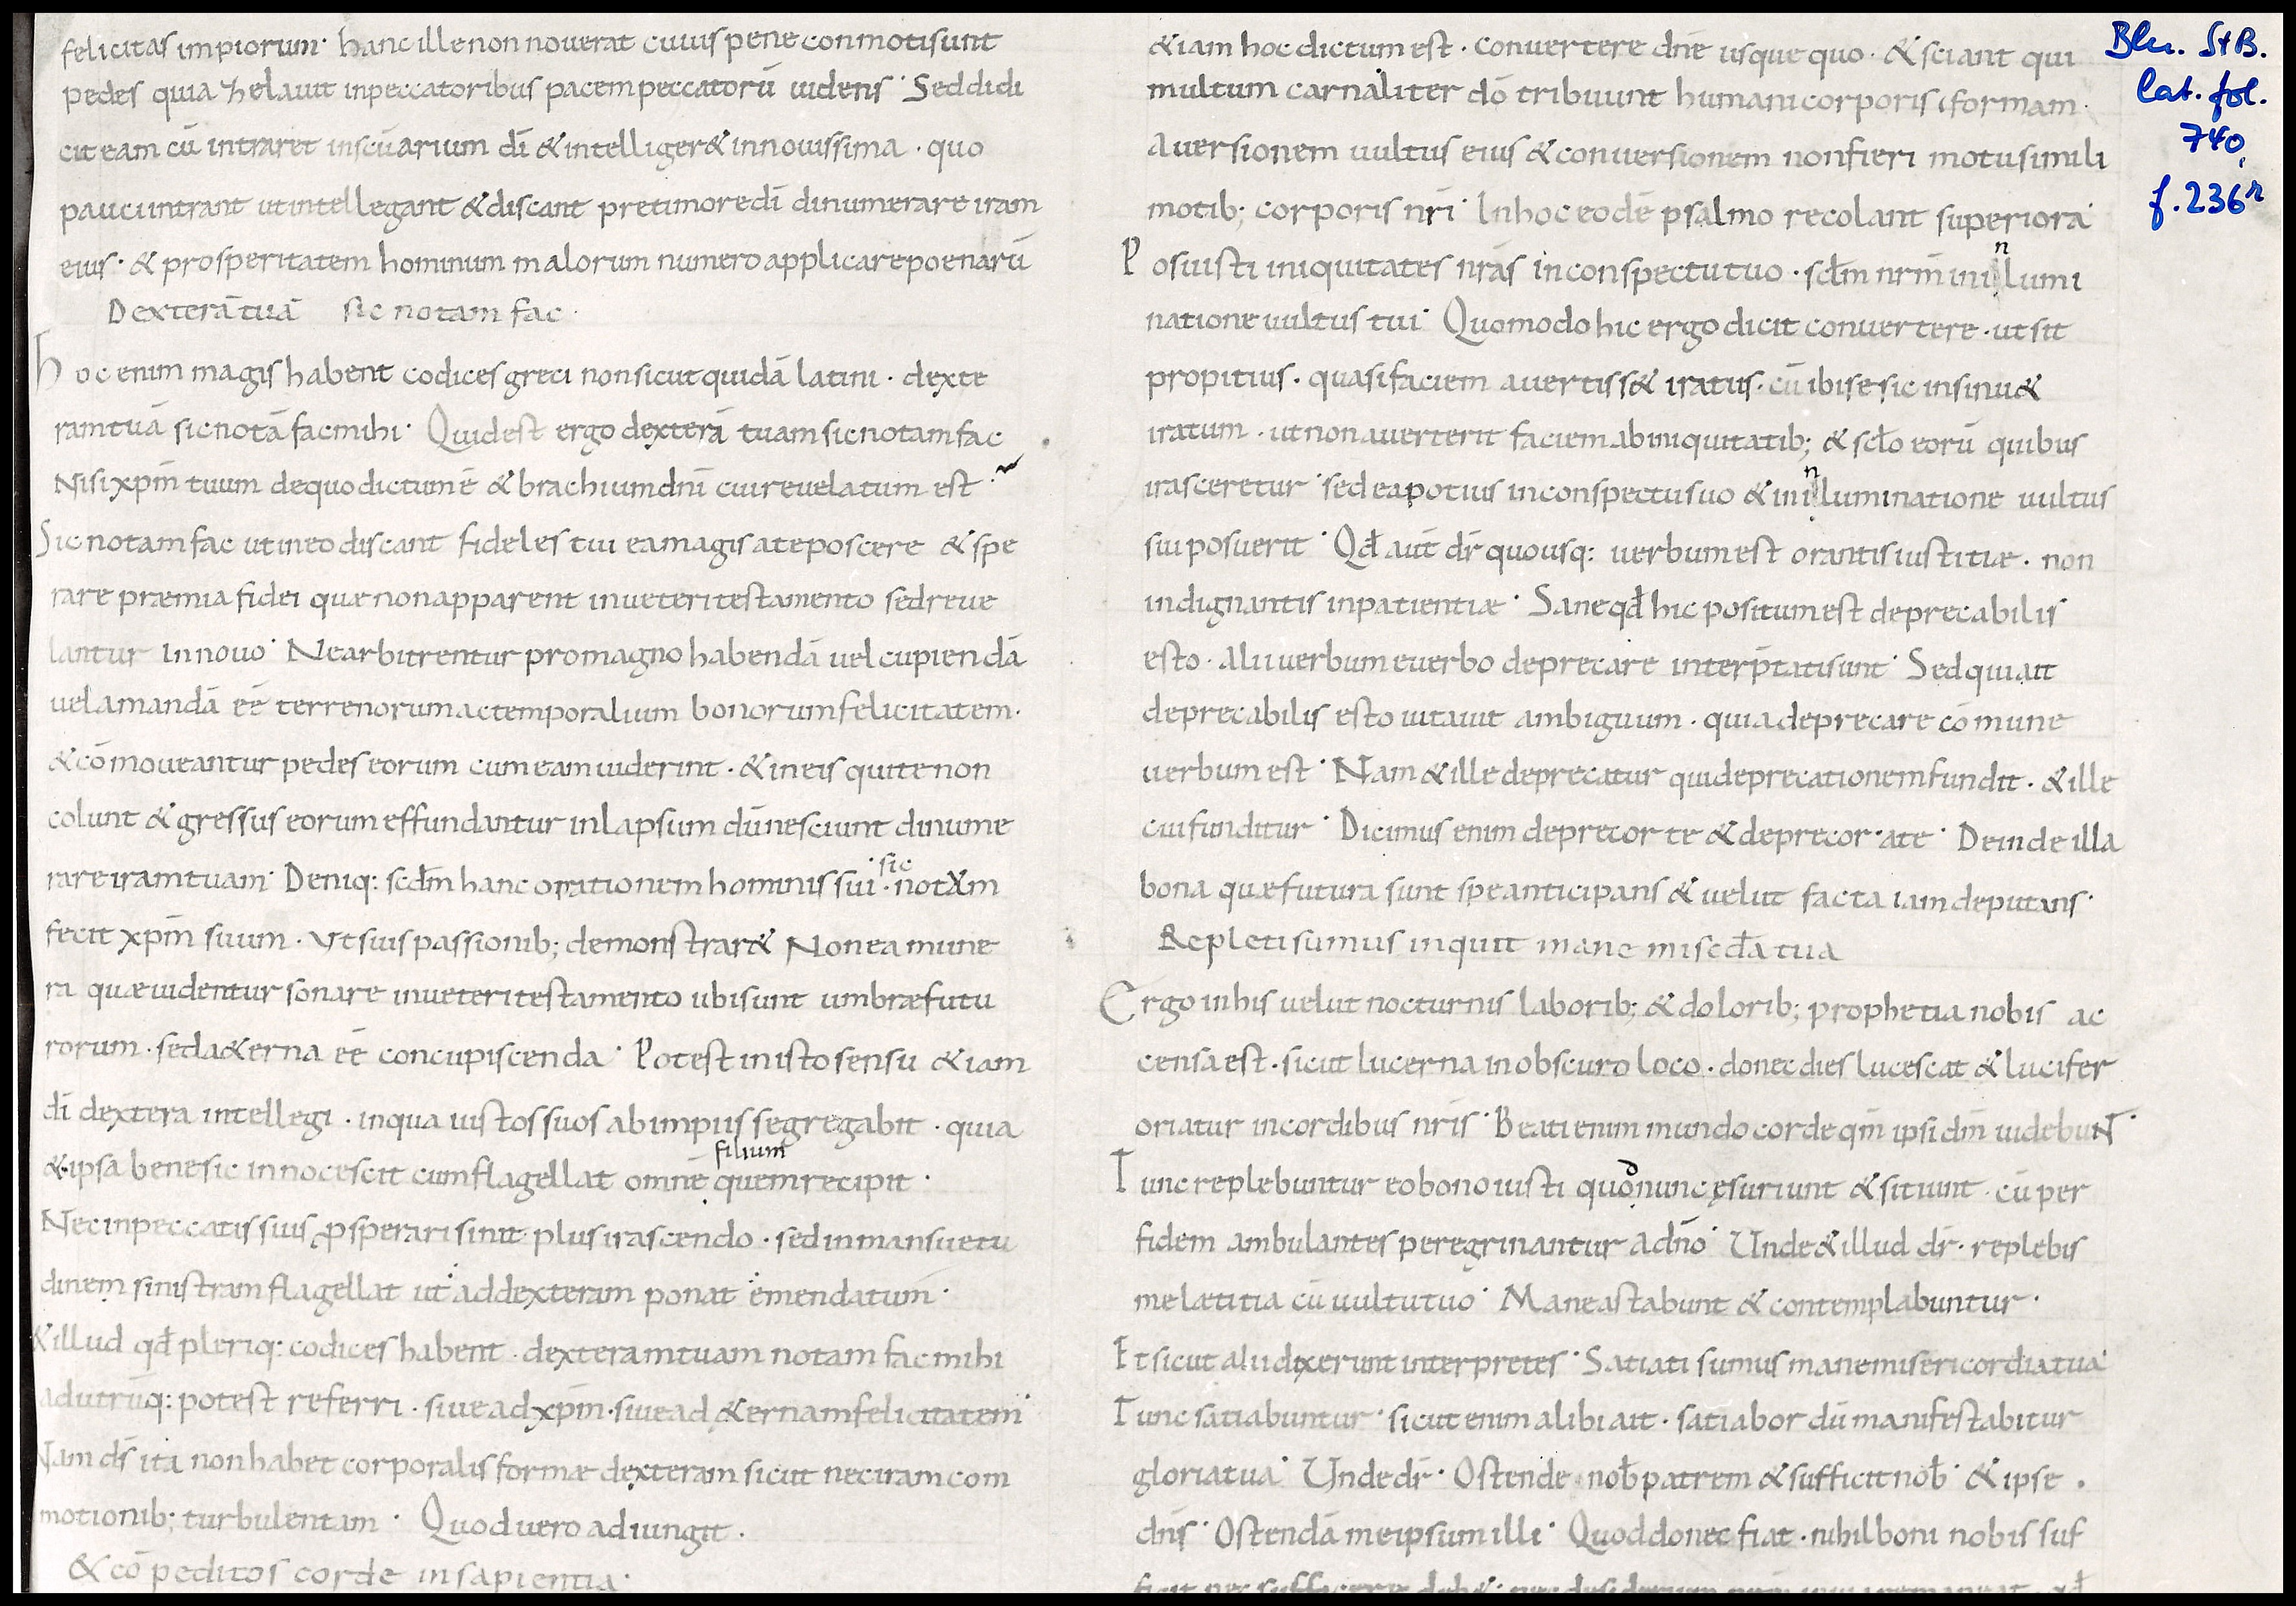 felicitas impiorum· hanc ille non noverat cuius pene conmoti sunt
pedes quia zhelavit in peccatoribus pacem peccatorū uidens· Sed didi
cit eam cū intraret in scūarium dī & intelliger& in novissima · quo
pauci intrant ut intellegant & discant pre timore dī dinumerare iram
eius· & prosperitatem hominum malorum numero applicare poenarū
Dexterā tuā sic notam fac·
hoc enim magis habent codices greci non sicut quidā latini · dexte
ram tuā sic notā fac mihi· Quid est ergo dexterā tuam sic notam fac
Nisi xpm̄ tuum de quo dictum ē & brachium dn̄i cui revelatum est·
Sic notam fac ut in eo discant fideles tui ea magis a te poscere & spe
rare præmia fidei quæ non apparent in veteri testamento sed reve
lantur in novo· Ne arbitrentur pro magno habendā vel cupiendā
vel amandā eē terrenorum ac temporalium bonorum felicitatem·
& cōmoveantur pedes eorum cum eam viderint · & in eis qui te non
colunt & gressus eorum effundantur in lapsum dū nesciunt dinume
rare iram tuam· Deniq: scd̄m hanc orationem hominis sui · sic notam
fecit xpm̄ suum · Vt suis passionib; demonstrar& Non ea mune
ra quæ videntur sonare in veteri testamento ubi sunt umbræ futu
rorum · sed a&erna eē concupiscenda· Potest in isto sensu & iam
dī dextera intellegi · in qua iustos suos ab impiis segregabit · quia
& ipsa bene sic innocescit cum flagellat omnē filium quem recipit ·
Nec in peccatis suis prosperari sinit plus irascendo · sed in mansuetu
dinem sinistram flagellat ut ad dexteram ponat emendatum·
& illud qd̄ pleriq: codices habent · dexteram tuam notam fac mihi
ad utrūq: potest referri · sive ad xpm̄ · sive ad &ernam felicitatem
Nam ds̄ ita non habet corporalis formæ dexteram sicut nec iram com
motionib; turbulentam · Quod vero adiungit ·
& cōpeditos corde in sapientia·
& iam hoc dictum est · convertere dn̄e usque quo · & sciant qui
multum carnaliter dō tribuunt humani corporis formam·
aversionem vultus eius & conversionem non fieri motu simili
motib; corporis nr̄i· In hoc eodē psalmo recolant superiora·
Posuisti iniquitates nr̄as in conspectu tuo · scd̄m nrm̄ in inlumi
natione vultus tui· Quomodo hic ergo dicit convertere · ut sit
propitius · quasi faciem avertiss& iratus · cū ibi se sic insinu&
iratum · ut non averterit faciem ab iniquitatib; & scło eorū quibus
irasceretur· sed ea potius in conspectu suo & in inluminatione vultus
sui posuerit· Qd̄ aut̄ dr̄ quousq: verbum est orantis iustitiæ · non
indignantis inpatientiæ· Sane qd̄ hic positum est deprecabilis
esto · alii verbum e verbo deprecare interp̄tati sunt· Sed qui ait
deprecabilis esto vitavit ambiguum · quia deprecare cōmune
verbum est· Nam & ille deprecatur qui deprecationem fundit · & ille
cui funditur· Dicimus enim deprecor te & deprecor· a te· Deinde illa
bona quæ futura sunt spe anticipans & velut facta iam deputans·
Repleti sumus inquit mane miscd̄a tua
Ergo in his velut nocturnis laborib; & dolorib; prophetia nobis ac
censa est · sicut lucerna in obscuro loco · donec dies lucescat & lucifer
oriatur in cordibus nr̄is· Beati enim mundo corde qm̄ ipsi dm̄ videbuNT·
Tunc replebuntur eo bono iusti quod nunc esuriunt & sitiunt · cū per
fidem ambulantes peregrinantur a dn̄o· Unde & illud dr̄· replebis
me lætitia cū vultu tuo· Mane astabunt & contemplabuntur·
Et sicut alii dixerunt interpretes· Satiati sumus mane misericordia tua·
Tunc satiabuntur· sicut enim alibi ait · satiabor dū manifestabitur
gloria tua· Unde dr̄· Ostende nob̄ patrem & sufficit nob̄· & ipse ·
dns̄· Ostendā me ipsum illi· Quod donec fiat · nihil boni nobis suf
Bln. StB.
lat. fol.
740,
f. 236r